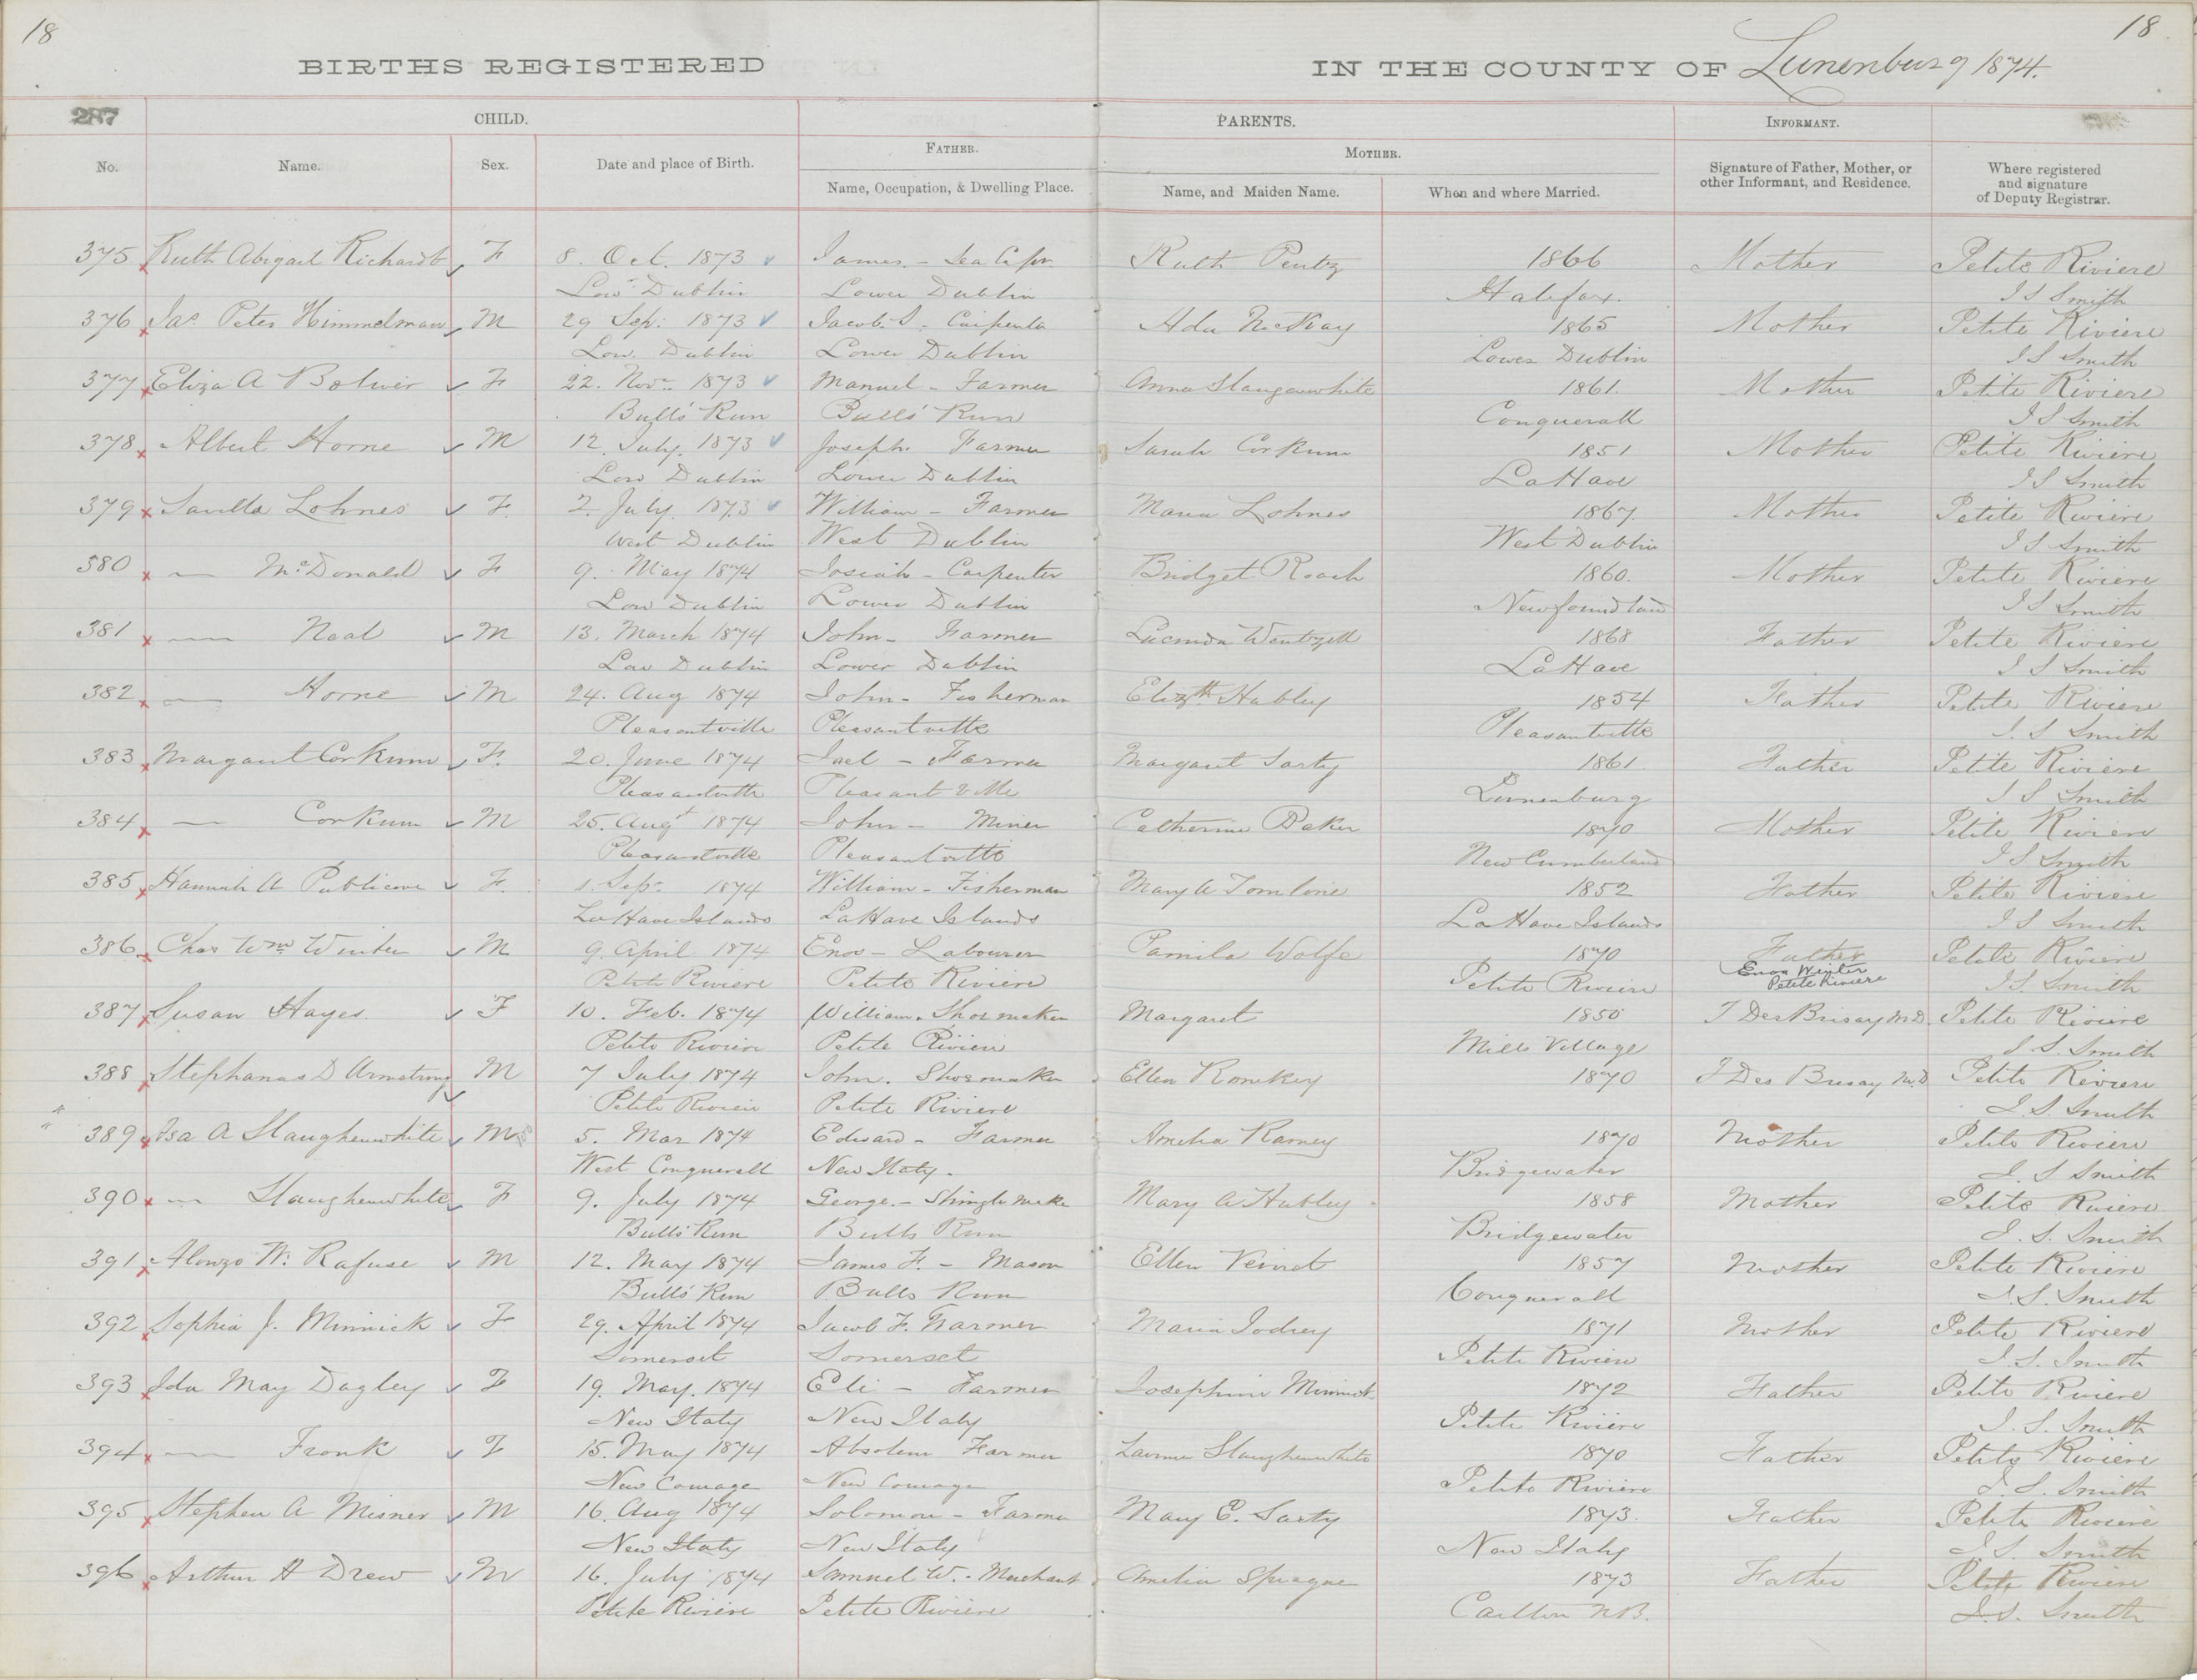 18 18
BIRTHS REGISTERED IN THE COUNTY OF Lunenburg 1874.
287 CHILD. PARENTS. INFORMANT.
FATHER. MOTHER.
No. Name. Sex. Date and place of Birth. Name, Occupation, & Dwelling Place. Name, and Maiden Name. When and where Married. Signature of Father, Mother, or other Informant, and Residence. Where registered and signature of Deputy Registrar.
375 Ruth Abigail Richardt F 8. Oct. 1873 James - Sea Capn. Ruth Pentz 1866 Mother Petite Riviere
Low Dublin Lower Dublin Halifax. I S Smith
376 Jas. Peter Himmelman M 29 Sep: 1873 Jacob S. Carpenter Ada McKay 1865 Mother Petite Riviere
Low. Dublin Lower Dublin Lower Dublin I S Smith
377 Eliza A Bolver F 22. Novr. 1873 Manuel - Farmer Anna Slaugenwhite 1861. Mother Petite Riviere
Bulls' Run Bulls' Run Conquerall I S Smith
378 Albert Horne M 12. July. 1873 Joseph. Farmer Sarah Corkum 1851 Mother Petite Riviere
Low Dublin Lower Dublin LaHave I S Smith
379 Savilla Lohnes F. 2. July. 1873 William - Farmer Maria Lohnes 1867. Mother Petite Riviere
West Dublin West Dublin West Dublin I S Smith
380 — McDonald F 9. May 1874 Josiah - Carpenter Bridget Roach 1860. Mother Petite Riviere
Low Dublin Lower Dublin Newfoundland I S Smith
381 — Neal M 13. March 1874 John - Farmer Lucinda Wentzell 1868 Father Petite Riviere
Low Dublin Lower Dublin LaHave I S Smith
382 — Horne M 24. Aug 1874 John - Fisherman Elizth Hubley 1854 Father Petite Riviere
Pleasantville Pleasantville Pleasantville I. S Smith
383 Margaret Corkum F. 20. June 1874 Joel - Farmer Margaret Sarty 1861 Father Petite Riviere
Pleasantville Pleasantville Lunenburg I S Smith
384 — Corkum M 25. Augt 1874 John - Miner Catherine Baker 1870 Mother Petite Riviere
Pleasantville Pleasantville New Cumberland I S Smith
385 Hannah A Publicover F. 1. Sepr. 1874 William - Fisherman Mary A 1852 Father Petite Riviere
LaHave Islands LaHave Islands LaHave Islands I S Smith
386 Chas Wm Winter M 9. April 1874 Enos - Labourer Pamila Wolfe 1870 Father Petite Riviere
Petite Riviere Petite Riviere Petite Riviere Enos Winter Petite Riviere I S. Smith
387 Susan Hayes F 10. Feb. 1874 William. Shoemaker Margaret 1850 T DesBrisay M.D. Petite Riviere
Petite Riviere Petite Riviere Mill Village I. S. Smith
388 Stephanas D Armstrong M 7 July 1874 John. Shoemaker Ellen Romkey 1870 T Des Brisay M.D Petite Riviere
Petite Riviere Petite Riviere I. S. Smith
389 Isa A Slaughenwhite M 5. Mar 1874 Edward - Farmer Amelia Ramey 1870 Mother Petite Riviere
West Conquerall New Italy. Bridgewater I. S Smith
390 — Slaughenwhite F 9. July 1874 George. - Shingle make Mary A Hubley 1858 Mother Petite Riviere
Bulls' Run Bulls Run Bridgewater I. S. Smith
391 Alonzo W. Rafuse M 12. May 1874 James F. - Mason Ellen Veinot 1857 Mother Petite Riviere
Bulls' Run Bulls Run Conquerall I. S. Smith
392 Sophia J. Minnick F 29. April 1874 Jacob F. Farmer Maria Jodrey 1871 Mother Petite Riviere
Somerset Somerset Petite Riviere I. S. Smith
393 Ida May Dagley F 19. May. 1874 Eli - Farmer Josephine Minnick 1872 Father Petite Riviere
New Italy New Italy Petite Riviere I. S. Smith
394 — Fronk F 15. May 1874 Absolem Farmer Slaughenwhite 1870 Father Petite Riviere
New Petite Riviere I. S. Smith
395 Stephen A Misner M 16. Aug 1874 Solomon - Farmer Mary E. Sarty 1873. Father Petite Riviere
New Italy New Italy New Italy I S. Smith
396 Arthur H Drew M 16. July 1874 Samuel W. - Merchant Amelia Sprague 1873 Father Petite Riviere
Petite Riviere Petite Riviere Carlton N.B. I. S. Smith